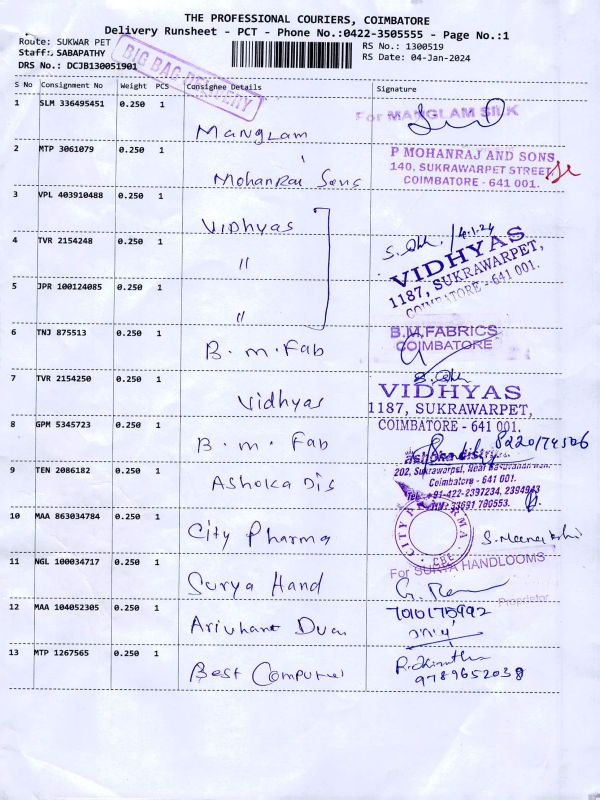 THE PROFESSIONAL COURIERS, COIMBATORE
Delivery Runsheet - PCT - Phone No.:0422-3505555 - Page No.:1
Route: SUKWAR PET
RS No.: 1300519
Staff: SABAPATHY
RS Date: 04-Jan-2024
DRS No.: DCJB130051901
BIG BAG DELIVERY
S No Consignment No Weight PCS Consignee Details Signature
1 SLM 336495451 0.250 1 Manglam For MANGLAM SILK
2 MTP 3061079 0.250 1 Mohanraj Sons P MOHANRAJ AND SONS,
140, SUKRAWARPET STREET,
COIMBATORE - 641 001.
3 VPL 403910488 0.250 1 Vidhyas 4.1.24
4 TVR 2154248 0.250 1 " VIDHYAS
1187, SUKRAWARPET,
COIMBATORE - 641 001.
5 JPR 100124085 0.250 1 "
6 TNJ 875513 0.250 1 B.m.Fab B.M.FABRICS
COIMBATORE
7 TVR 2154250 0.250 1 Vidhyas VIDHYAS
1187, SUKRAWARPET,
COIMBATORE - 641 001.
8 GPM 5345723 0.250 1 B.m.Fab
9 TEN 2086182 0.250 1 Ashoka Dis
202, Sukrawarpet, Near
Coimbatore - 641 001.
Tel: +91-422-2397234, 2394943
10 MAA 863034784 0.250 1 City Pharma CITY PHARMA CBE S. Meenakshi
11 NGL 100034717 0.250 1 Surya Hand For SURYA HANDLOOMS
Proprietor
12 MAA 104052305 0.250 1 Arihant 
13 MTP 1267565 0.250 1 Best Computer
9789652038